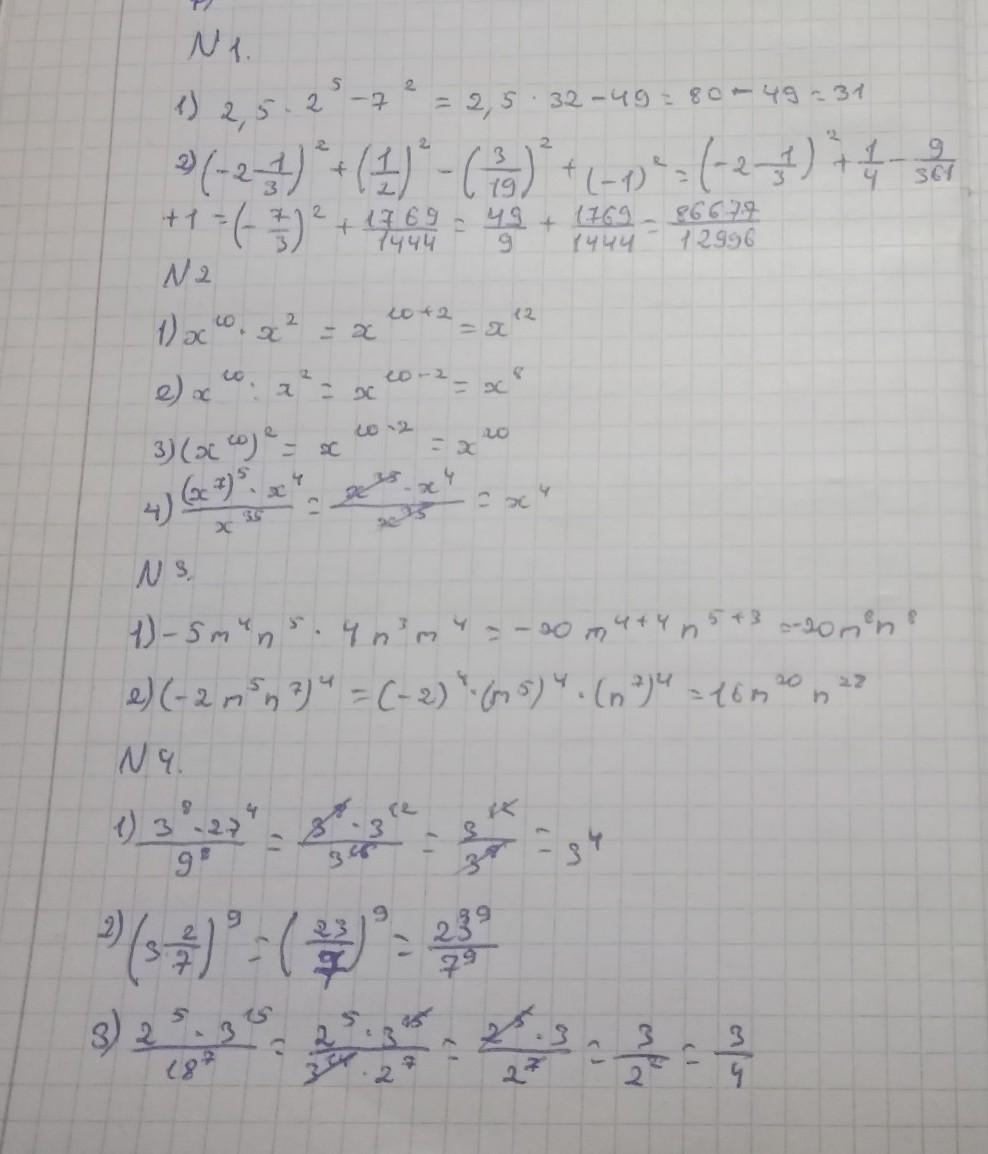 N 1.
1) 2,5 · 2^5 − 7^2 = 2,5 · 32 − 49 = 80 − 49 = 31
2) (−2 1/3)^2 + (1/2)^2 − (3/19)^2 + (−1)^2 = (−2 1/3)^2 + 1/4 − 9/361
+1 = (−7/3)^2 + 1769/1444 = 49/9 + 1769/1444 = 86677/12996
N 2
1) x^10 · x^2 = x^10+2 = x^12
2) x^10 : x^2 = x^10−2 = x^8
3) (x^10)^2 = x^10·2 = x^20
4) (x^7)^5 · x^4 / x^35 = x^35 · x^4 / x^35 = x^4
N 3.
1) −5m^4n^5 · 4n^3m^4 = −20m^4+4 n^5+3 = −20m^8n^8
2) (−2m^5n^7)^4 = (−2)^4 · (m^5)^4 · (n^7)^4 = 16m^20 n^28
N 4.
1) 3^8 · 27^4 / 9^8 = 3^8 · 3^12 / 3^16 = 3^12 / 3^8 = 3^4
2) (3 2/7)^9 = (23/7)^9 = 23^9/7^9
3) 2^5 · 3^15 / 18^7 = 2^5 · 3^15 / 3^14 · 2^7 = 2^5 · 3 / 2^7 = 3/2^2 = 3/4